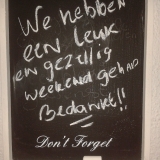 We hebben
een leuk
en gezellig
weekend gehad
Bedankt!!
Don't Forget